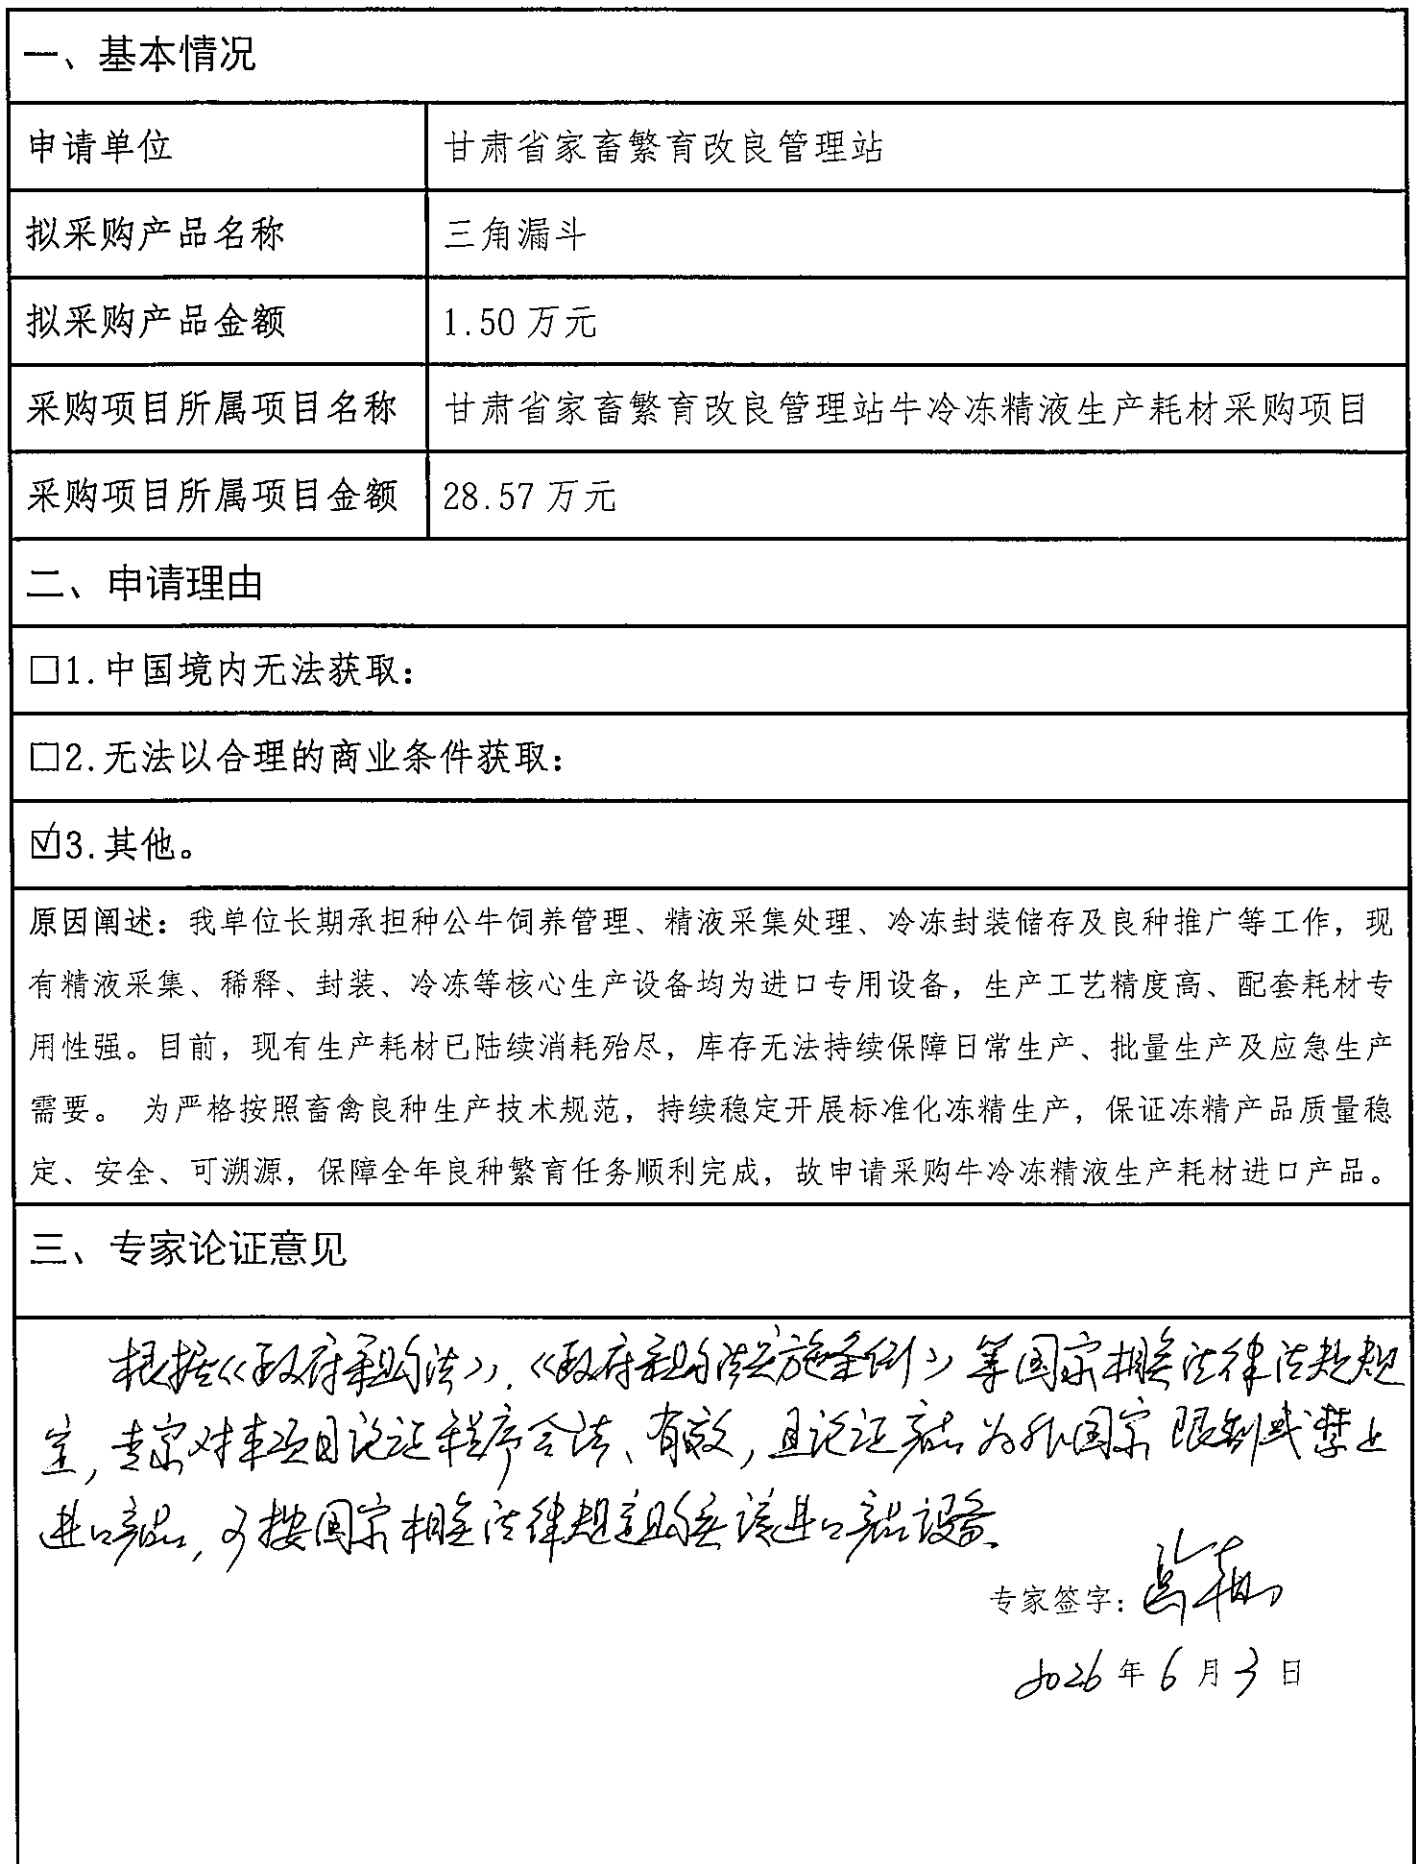 一、基本情况
申请单位 甘肃省家畜繁育改良管理站
拟采购产品名称 三角漏斗
拟采购产品金额 1.50万元
采购项目所属项目名称 甘肃省家畜繁育改良管理站牛冷冻精液生产耗材采购项目
采购项目所属项目金额 28.57万元
二、申请理由
□1.中国境内无法获取：
□2.无法以合理的商业条件获取：
☑3.其他。
原因阐述：我单位长期承担种公牛饲养管理、精液采集处理、冷冻封装储存及良种推广等工作，现
有精液采集、稀释、封装、冷冻等核心生产设备均为进口专用设备，生产工艺精度高、配套耗材专
用性强。目前，现有生产耗材已陆续消耗殆尽，库存无法持续保障日常生产、批量生产及应急生产
需要。 为严格按照畜禽良种生产技术规范，持续稳定开展标准化冻精生产，保证冻精产品质量稳
定、安全、可溯源，保障全年良种繁育任务顺利完成，故申请采购牛冷冻精液生产耗材进口产品。
三、专家论证意见
根据《政府采购法》、《政府采购法实施条例》等国家相关法律法规规
定，专家对本项目论证程序合法、有效，且论证产品为非国家限制或禁止
进口产品，可按国家相关法律规定购买该进口产品设备。
专家签字：
2026年6月3日